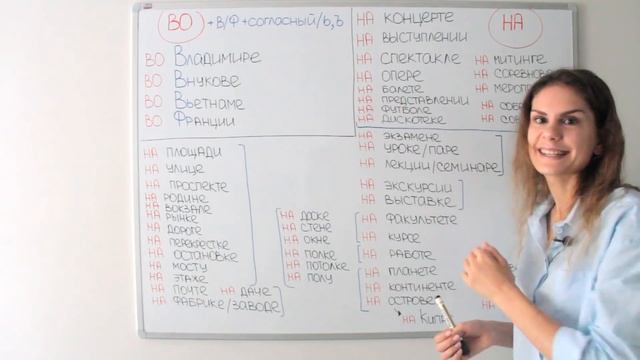 ВО +В/Ф+СОГЛАСНЫЙ/Ь,Ъ
ВО ВЛАДИМИРЕ
ВО ВНУКОВЕ
ВО ВЬЕТНАМЕ
ВО ФРАНЦИИ
НА
НА КОНЦЕРТЕ
НА ВЫСТУПЛЕНИИ
НА СПЕКТАКЛЕ
НА ОПЕРЕ
НА БАЛЕТЕ
НА ПРЕДСТАВЛЕНИИ
НА ФУТБОЛЕ
НА ДИСКОТЕКЕ
НА МИТИНГЕ
НА
НА
НА
НА
НА ПЛОЩАДИ
НА УЛИЦЕ
НА ПРОСПЕКТЕ
НА РОДИНЕ
НА ВОКЗАЛЕ
НА РЫНКЕ
НА ДОРОГЕ
НА ПЕРЕКРЕСТКЕ
НА ОСТАНОВКЕ
НА МОСТУ
НА ЭТАЖЕ
НА ПОЧТЕ НА ДАЧЕ
НА ФАБРИКЕ/ЗАВОДЕ
НА ДОСКЕ
НА СТЕНЕ
НА ОКНЕ
НА ПОЛКЕ
НА ПОТОЛКЕ
НА ПОЛУ
НА ЭКЗАМЕНЕ
НА УРОКЕ/ПАРЕ
НА ЛЕКЦИИ/СЕМИНАРЕ
НА ЭКСКУРСИИ
НА ВЫСТАВКЕ
НА ФАКУЛЬТЕТЕ
НА КУРСЕ
НА РАБОТЕ
НА ПЛАНЕТЕ
НА КОНТИНЕНТЕ
НА ОСТРОВЕ
НА